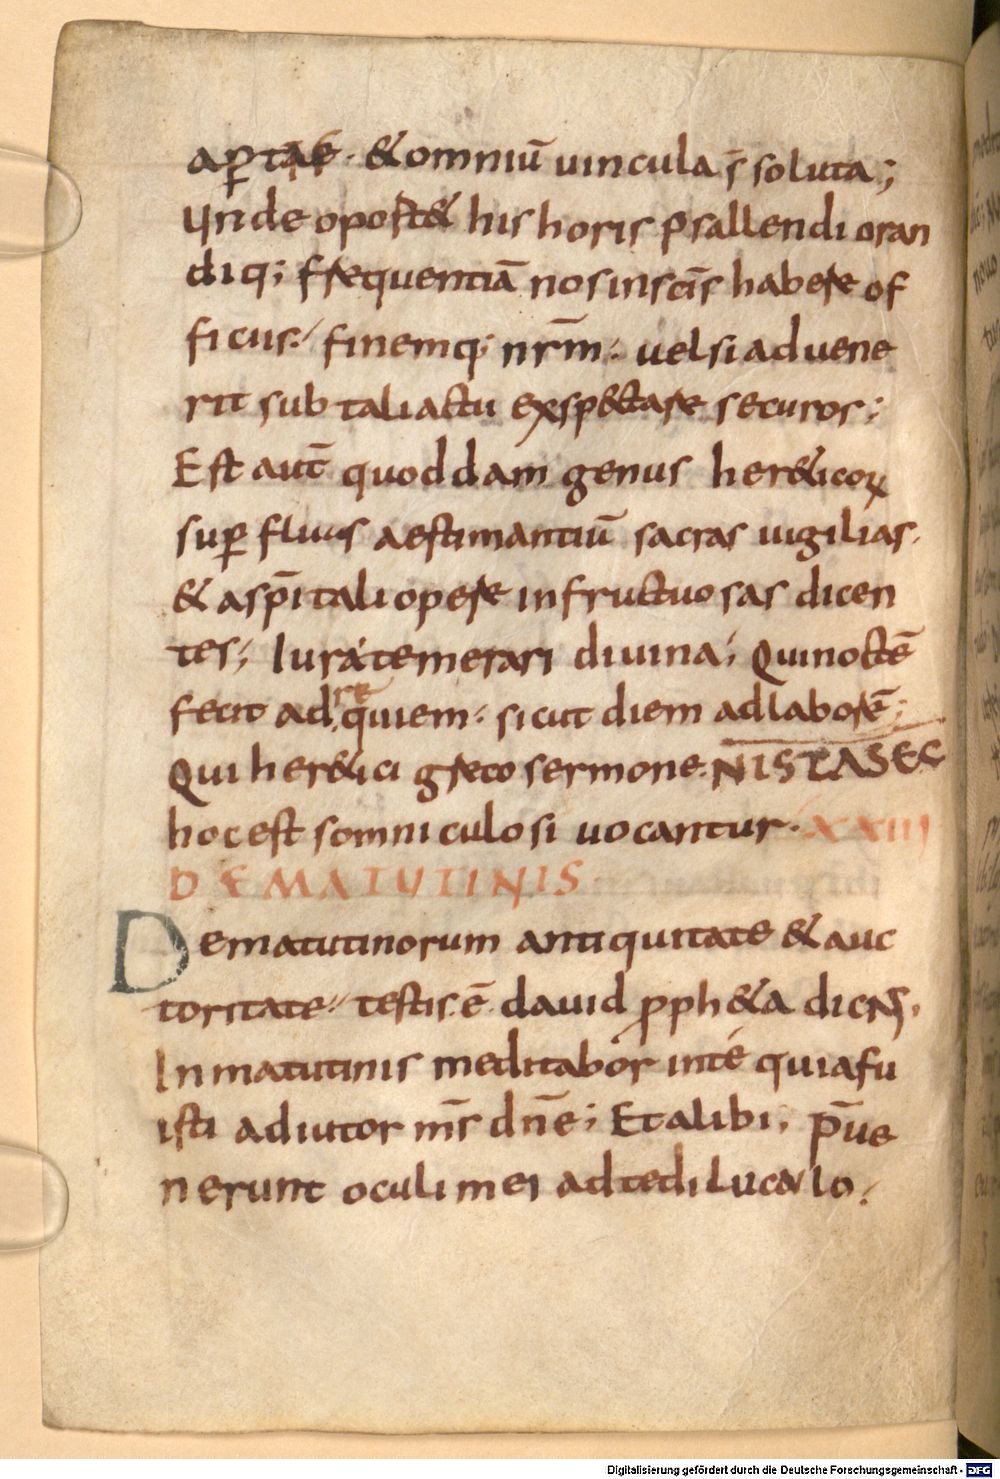 aꝑtae· & omniū uincula s̄ soluta;
Unde oport& his horis psallendi oran
diq; frequentiā nos in sc̄is habere of
ficiis· finemq; nr̄m· uel si aduene
rit sub tali actu exspectare securos;
Est aut̄ quoddam genus her&icoꝝ
suꝑfluas aestimantiū sacras uigilias·
& asp̄i tali opere infructuosas dicen
tes; Iura temerari diuina; Qui noctē
fecit ad requiem· sicut diem ad laborē;
Qui her&ici greco sermone· NISTASEC
hoc est somniculosi uocantur· XXIII
DE MATUTINIS·
De matutinorum antiquitate & auc
toritate· testis ē dauid ꝓph&a dicNS·
In matutinis meditabor in té quia fu
isti adiutor m̄s dn̄e; Et alibi; p̄ue
nerunt oculi mei ad te diluculo·
Digitalisierung gefördert durch die Deutsche Forschungsgemeinschaft - DFG